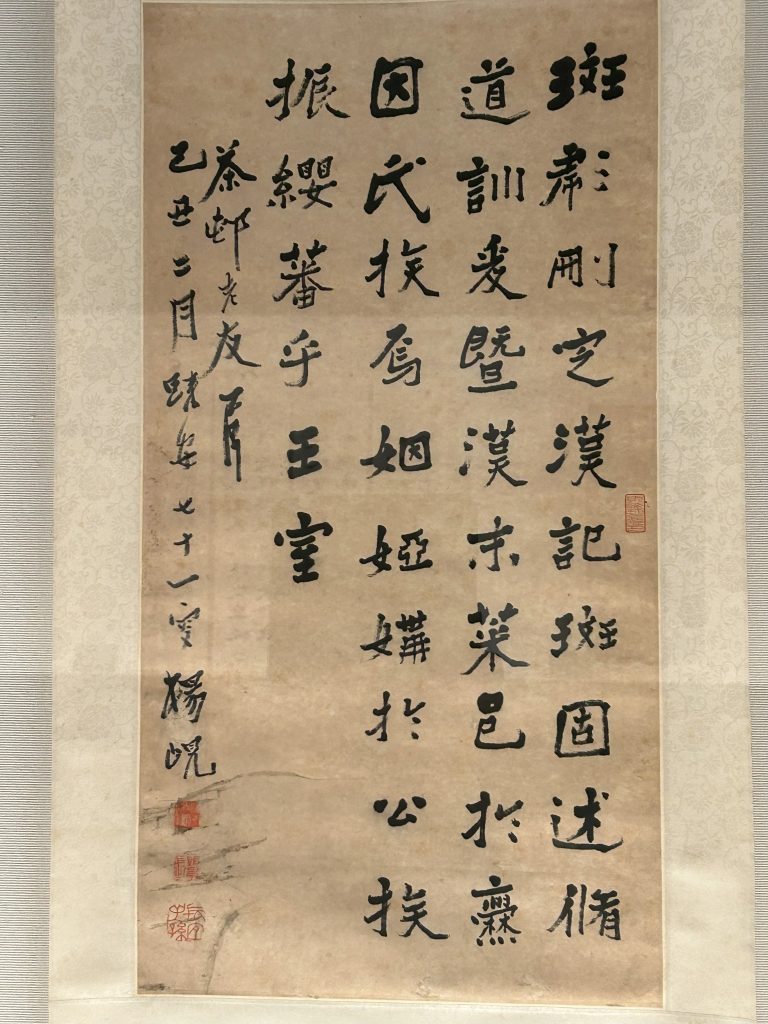 斑彪刪定漢記斑固述脩
道訓爰暨漢末菜邑於爨
因氏族焉姻婭媾於公族
振纓蕃乎王室
茶邨老友
己丑二月 七十一叟楊峴